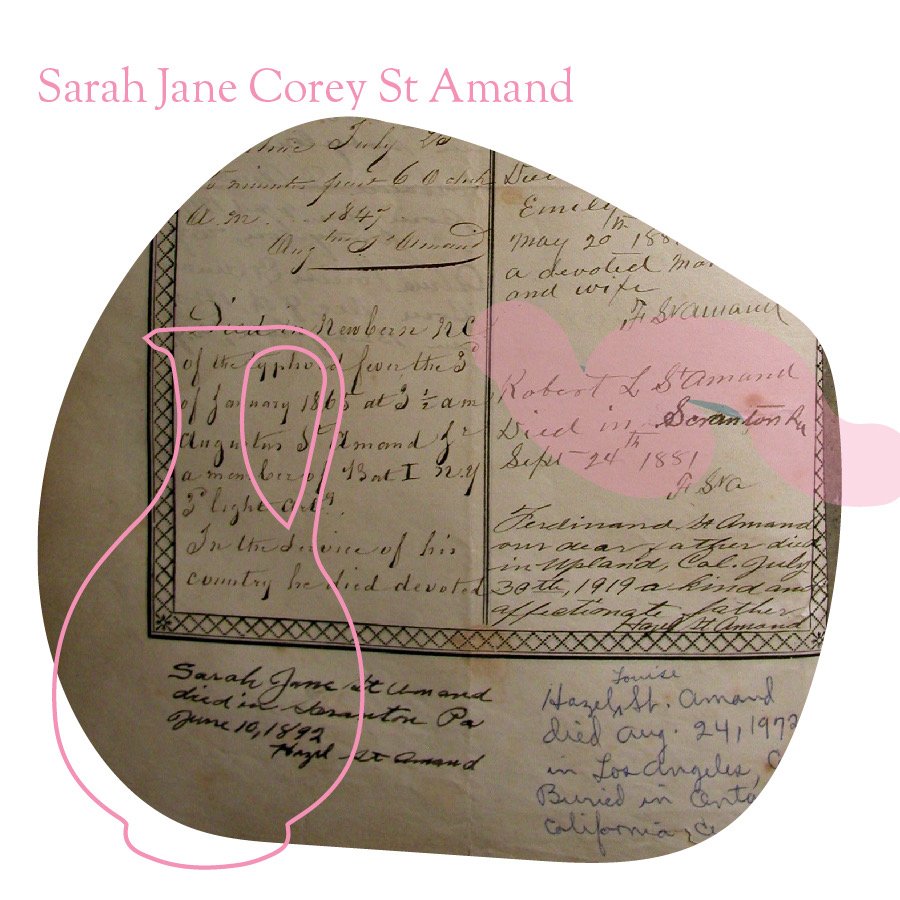 Sarah Jane Corey St Amand
July 25
minutes past 6 O clock
A.M. 1847
St Amand
Died in Newbern N.C.
of the typhoid fever the 3d
of January 1865 at 3 ½ a m
Augustus St Amand Jr
a member of Bat I N.Y
3d light Arty.
In the Service of his
country he died devoted
Emily
May 20th 188
a devoted
and wife
F StAmand
Robert L StAmand
Died in Scranton Pa
Sept 24th 1881
F StA
Ferdinand St Amand
our dear father died
in Upland, Cal. July
30th, 1919 a kind and
affectionate father
Hazel St Amand
Sarah Jane St Amand
died in Scranton Pa
June 10, 1892
Hazel St Amand
Louise
Hazel St. Amand
died Aug. 24, 1972
in Los Angeles,
Buried in
California,